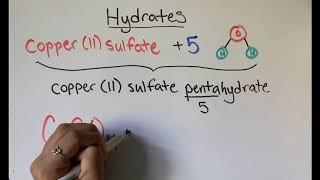 Hydrates
Copper (II) sulfate + 5 O H H
copper (II) sulfate pentahydrate
5